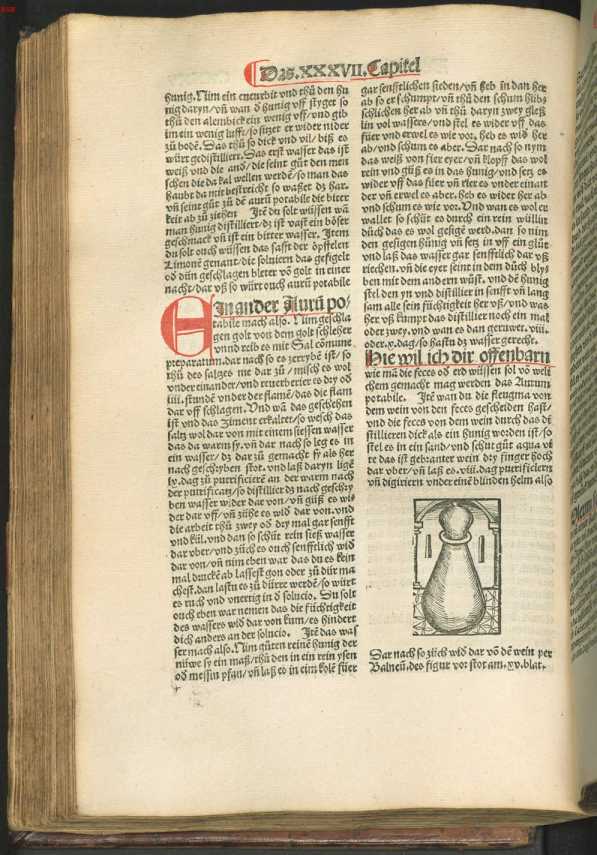 Das.XXXVII.Capitel
hunig. Nim ein cucurbit vnd thů den hu
nig daryn/vñ wan ð hunig vff styget so
thů den alembick ein wenig vff/vnd gib
im ein wenig lufft/so sitzet er wider nider
zů bodē. Das thů so dick vnd vil/biß es
würt gedistilliert. Das erst wasser das ist
weiß vnd die and/die seint gůt den men
schen die da kal wellen werdē/so man das
haubt da mit bestreicht so waßet dz har.
vñ seint gůt zů dē aurū potabile die bitter
keit ab zů ziehen Itē du solt wüssen wā
man hunig distilliert/dz ist vast ein böser
geschmack vñ ist ein bitter wasser. Item
du solt ouch wüssen das safft der öpffelen
Limonē genant/die soluiern das gefigelt
oð dün geschlagen bletter vō golt in einer
nacht/dar vß so würt ouch aurū potabile
Ein ander Aurū po/
tabile mach also. Nim geschla
gen golt von dem golt schleher
vnnd reib es mit Sal cōmune
preparatum.dar nach so es zerrybē ist/so
thů des saltzes me dar zů/misch es wol
vnder einander/vnd reuerberier es dry oð
iiii.stundē vnder der flamē/das die flam
dar vff schlagen. Vnd wā das geschehen
ist vnd das Ziment erkaltet/so wesch das
saltz wol dar von mit einem siessen wasser
das da warm sy.vñ dar nach so leg es in
ein wasser/dz dar zů gemacht sy als her
nach geschryben stot.vnd laß daryn ligē
ix.dag zů purificierē an der warm nach
der purificatz/so distillier dz nach geschry
ben wasser wider dar von/vñ güß es wi
der dar vff/vñ zühe es wið dar von.vnd
die arbeit thů zwey oð dry mal gar senfft
vnd kül.vnd dan so schüt rein sieß wasser
dar vber/vnd züch es ouch senfftlich wið
dar von/vñ nim eben war das du es kein
mal druckē ab lassest gon oder zů dür ma
chest.dan lastu es zů dürre werdē/so würt
es ruch vnd vnertig in ð solucio. Du solt
ouch eben war nemen das die füchtigkeit
des wassers wið dar von kum/es hindert
dich anders an der solucio. Itē das was
ser mach also. Nim gůten reinē hunig der
nüwe sy ein maß/thů den in ein rein ysen
oð messin pfan/vñ laß es in eim kolē füer
gar senfftlichen sieden/vñ heb in dan her
ab so er schumpt/vñ thů den schum hüb
schlichen her ab vñ thů daryn zwey gleß
lin vol wassers/vnd stel es wider vff das
füer vnd erwel es wie vor. heb es wið her
ab/vnd schum es aber. Dar nach so nym
das weiß von fier eyer/vñ klopff das wol
rein vnd güß es in das hunig/vnd setz es
wider vff das füer vñ rier es vnder einan
der vñ erwel es aber. heb es wider her ab
vnd schum es wie vor. Vnd wan es wol er
wallet so schüt es durch ein rein wüllin
důch das es wol gesigē werd.dan so nim
den gesigen hünig vñ setz in vff ein glůt
vnd laß das wasser gar senfftlich dar vß
riechen.vñ die eyer seint in dem důch blyb
ben mit dem andern wůst. vnd dē hunig
stel den yn vnd distillier in senfft vñ lang
sam alle sein füchtigkeit her vß/vnd was
her vß kumpt das distillier noch ein mal
oder zwey. vnd wan es dan geruwet.viii.
oder.x.dag/so hastu dz wasser gerecht.
Hie wil ich dir offenbarn
wie mā die feces oð erd wüssen sol vō welt
chem gemacht mag werden das Aurum
potabile. Itē wan du die fleugma von
dem wein von den feces gescheiden hast/
vnd die feces von dem wein durch das dē
stillieren dick als ein hunig worden ist/so
stel es in ein sand/vnd schüt gůt aqua vi
te das ist gebranter wein dry finger hoch
dar vber/vñ laß es.viii.dag purificieren
vñ digiriern vnder einē blinden helm also
Dar nach so züch wið dar vō dē wein per
Balneū.des figur vor stot am.xv.blat.